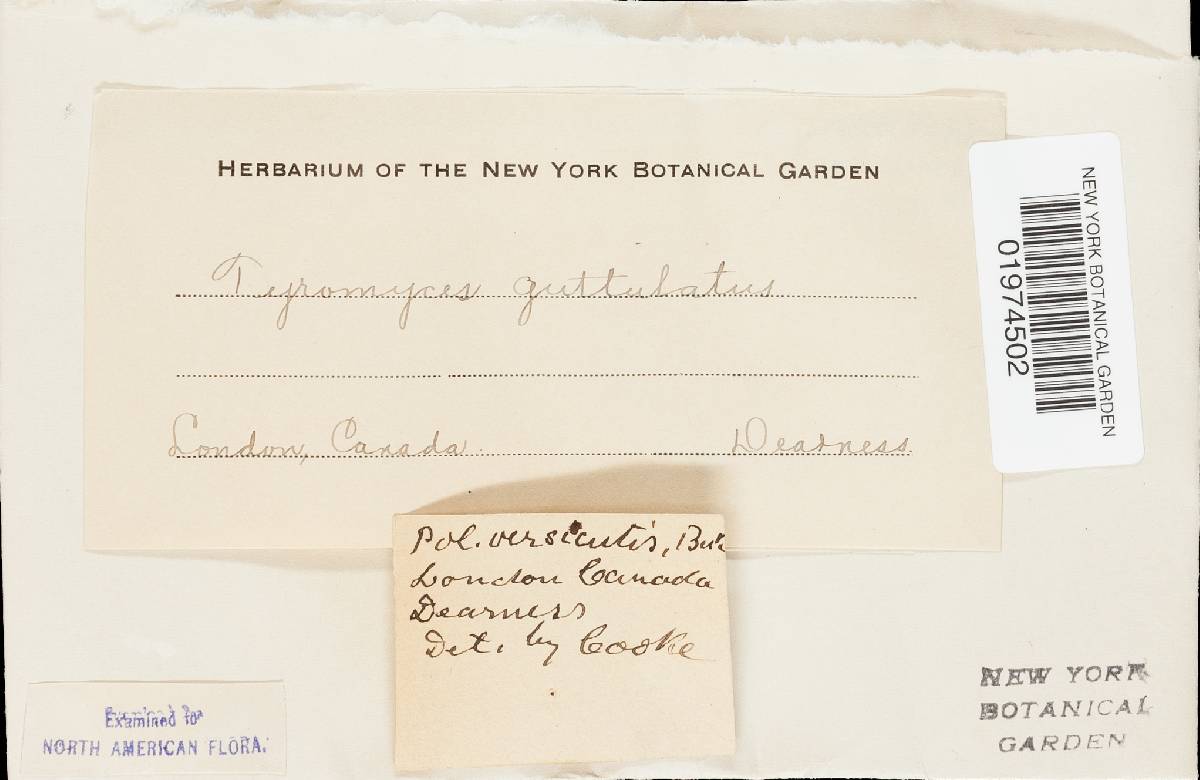 HERBARIUM OF THE NEW YORK BOTANICAL GARDEN
Tyromyces guttulatus
London, Canada. Dearness
NEW YORK BOTANICAL GARDEN
01974502
Pol. versicutis,
London Canada
Dearness
Det. by Cooke
Examined for
NORTH AMERICAN FLORA.
NEW YORK
BOTANICAL
GARDEN